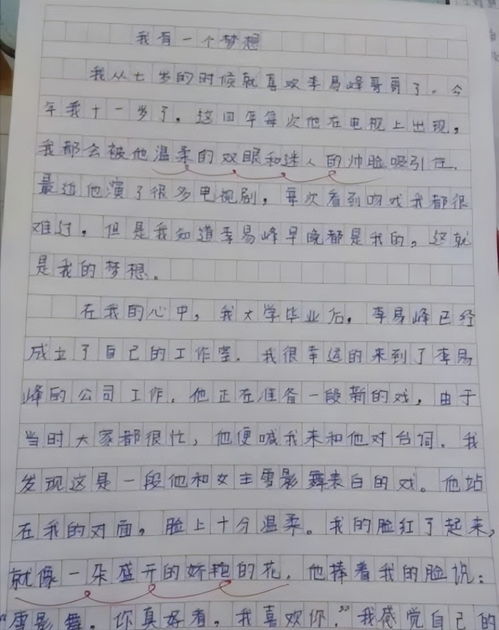 我有一个梦想
我从七岁的时候就喜欢李易峰哥哥了。今
年我十一岁了，这四年每次他在电视上出现，
我都会被他温柔的双眼和迷人的帅脸吸引住.
最近他演了很多电视剧，每次看到吻戏我都很
难过，但是我知道李易峰早晚都是我的，这就
是我的梦想。
在我的心中，我大学毕业后，李易峰已经
成立了自己的工作室，我很幸运的来到了李易
峰的公司工作，他正在准备一段新的戏，由于
当时大家都很忙，他便喊我来和他对台词，我
发现这是一段他和女主雪影舞表白的戏。他站
在我的对面，脸上十分温柔。我的脸红了起来，
就像一朵盛开的娇艳的花，他捧着我的脸说：
“雪影舞，你真好看，我喜欢你，”我感觉自己的